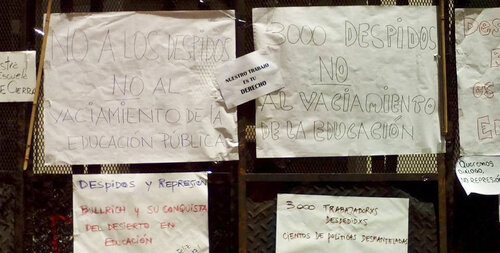 NO A LOS DESPIDOS
NO AL
VACIAMIENTO DE LA
EDUCACIÓN PÚBLICA
NUESTRO TRABAJO
ES TU
DERECHO
3000 DESPIDOS
NO
AL VACIAMIENTO
DE LA EDUCACIÓN
DESPIDOS Y REPRESIÓN
BULLRICH Y SU CONQUISTA
DEL DESIERTO EN
EDUCACIÓN
3000 TRABAJADORXS
DESPEDIDXS
CIENTOS DE POLÍTICAS DESMANTELADAS
Queremos
DIÁLOGO,
NO REPRESIÓN